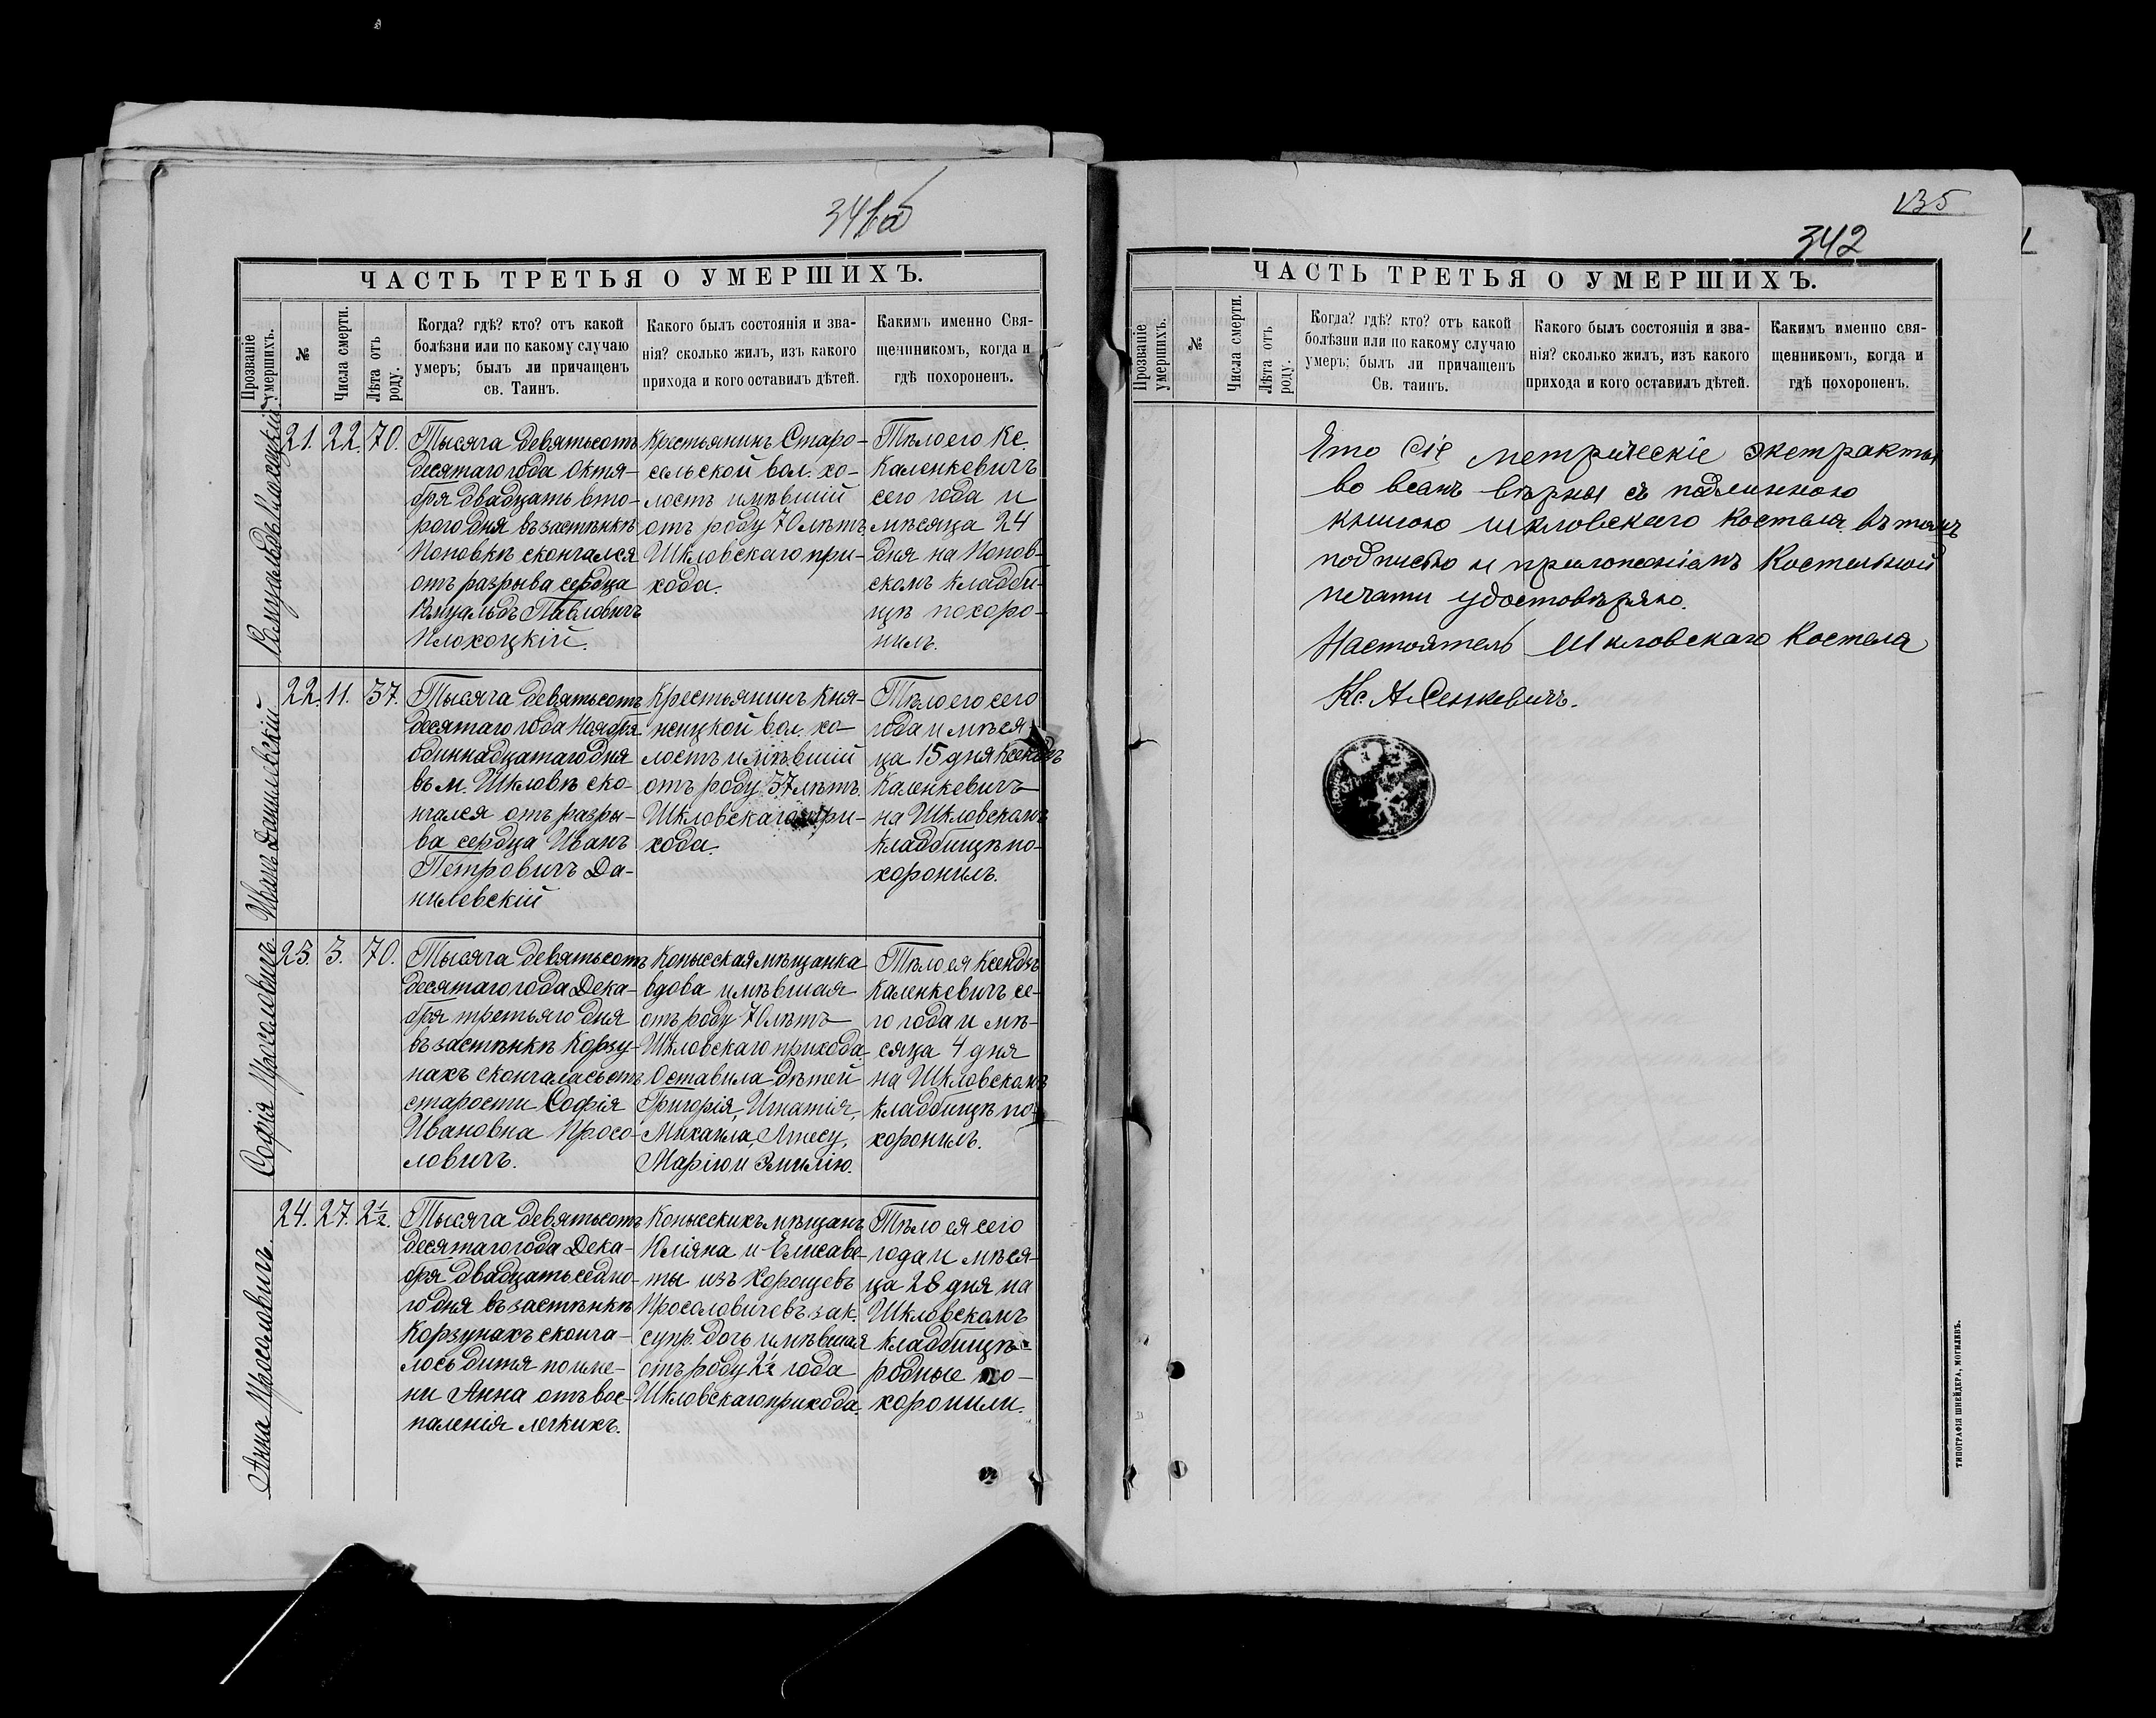 341об
ЧАСТЬ ТРЕТЬЯ О УМЕРШИХЪ.
Прозваніе умершихъ.
№
Числа смерти.
Лѣта отъ роду.
Когда? гдѣ? кто? отъ какой
болѣзни или по какому случаю
умеръ; былъ ли причащенъ
св. Таинъ.
Какого былъ состоянія и зва-
нія? сколько жилъ, изъ какого
прихода и кого оставилъ дѣтей.
Какимъ именно Свя-
щенникомъ, когда и
гдѣ похороненъ.
Ромуальдъ Плохоцкій
21.
22.
70.
Тысяча девятьсотъ
десятаго года Октя-
бря двадцать вто-
рого дня въ застѣнкѣ
Поповкѣ скончался
отъ разрыва сердца
Ромуальдъ Павловичъ
Плохоцкій.
Крестьянинъ Старо-
сельской вол. хо-
лостъ имѣвшій
отъ роду 70 лѣтъ
Шкловскаго при-
хода.
Тѣло его Кс.
Каленкевичъ
сего года и
мѣсяца 24
дня на Попов-
скомъ кладби-
щѣ похоро-
нилъ.
Иванъ Данилевскій
22.
11.
37.
Тысяча девятьсотъ
десятаго года Ноября
одиннадцатаго дня
въ м. Шкловѣ ско-
нчался отъ разры-
ва сердца Иванъ
Петровичъ Да-
нилевскій
Крестьянинъ Кня-
жицкой вол. хо-
лостъ имѣвшій
отъ роду 37 лѣтъ
Шкловскаго при-
хода.
Тѣло его сего
года и мѣся-
ца 15 дня Ксендзъ
Каленкевичъ
на Шкловскомъ
кладбищѣ по-
хоронилъ.
Софія Просоловичъ.
23.
3.
70.
Тысяча девятьсотъ
десятаго года Дека-
бря третьяго дня
въ застѣнкѣ Корзу-
нахъ скончалась отъ
старости Софія
Ивановна Просо-
ловичъ.
Копысская мѣщанка
вдова имѣвшая
отъ роду 70 лѣтъ
Шкловскаго прихода.
Оставила дѣтей
Григорія, Игнатія,
Михаила, Агнесу,
Марію и Эмилію.
Тѣло ея Ксендзъ
Каленкевичъ се-
го года и мѣ-
сяца 4 дня
на Шкловскомъ
кладбищѣ по-
хоронилъ.
Анна Просоловичъ.
24.
27.
2½.
Тысяча девятьсотъ
десятаго года Дека-
бря двадцать седмо-
го дня въ застѣнкѣ
Корзунахъ сконча-
лось дитя по име-
ни Анна отъ вос-
паленія легкихъ.
Копысскихъ мѣщанъ
Юліяна и Елисаве-
ты изъ Хорощевъ
Просоловичевъ зак.
супр. дочь имѣвшая
отъ роду 2½ года
Шкловскаго прихода.
Тѣло ея сего
года и мѣся-
ца 28 дня на
Шкловскомъ
кладбищѣ
родные по-
хоронили.
135
342
ЧАСТЬ ТРЕТЬЯ О УМЕРШИХЪ.
Прозваніе умершихъ.
№
Числа смерти.
Лѣта отъ роду.
Когда? гдѣ? кто? отъ какой
болѣзни или по какому случаю
умеръ; былъ ли причащенъ
Св. таинъ.
Какого былъ состоянія и зва-
нія? сколько жилъ, изъ какого
прихода и кого оставилъ дѣтей.
Какимъ именно свя-
щенникомъ, когда и
гдѣ похороненъ.
Что сіе метрическіе экстракты
во всемъ вѣрны съ подлинною
книгою Шкловскаго Костела въ томъ
подписью и приложеніемъ Костельной
печати удостовѣряю.
Настоятель Шкловскаго Костела
Кс. А. Сенкевичъ.
ТИПОГРАФІЯ ШНЕЙДЕРА, МОГИЛЕВЪ.